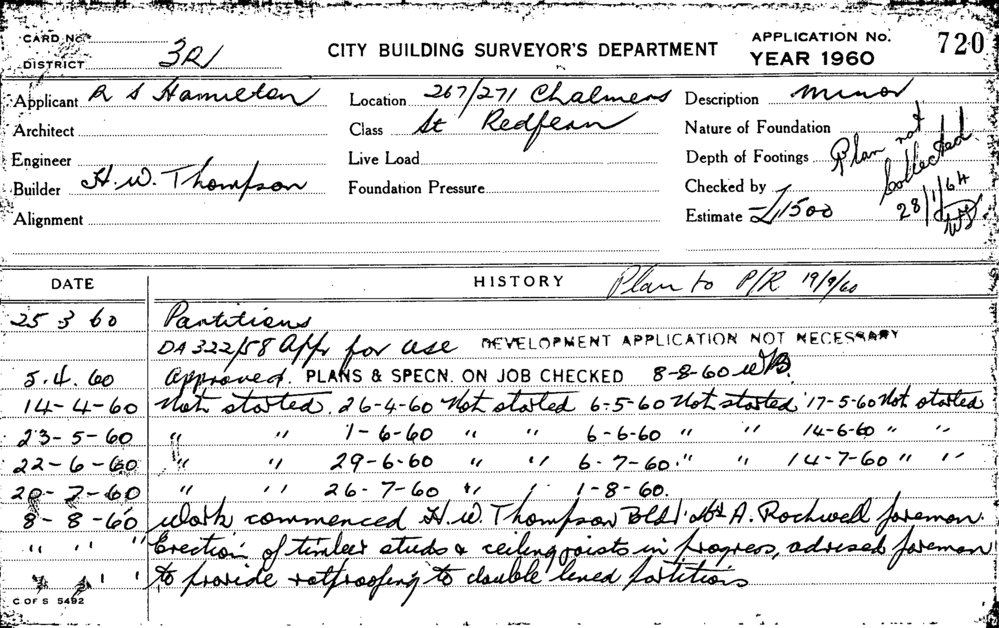 CARD No.
DISTRICT 3R1
CITY BUILDING SURVEYOR'S DEPARTMENT
APPLICATION No. 720
YEAR 1960
Applicant R S Hamilton
Location 267/271 Chalmers
Description minor
Architect
Class St Redfern
Nature of Foundation
Engineer
Live Load
Depth of Footings
Plan not collected 28/1/64
Builder H.W. Thompson
Foundation Pressure
Checked by
Alignment
Estimate £1500
DATE
HISTORY
Plan to P/R 19/9/60
25 3 60 Partitions
DA 322/58 App. for use DEVELOPMENT APPLICATION NOT NECESSARY
5.4.60 Approved. PLANS & SPECN. ON JOB CHECKED 8-8-60 WB.
14-4-60 Not started. 26-4-60 Not started 6-5-60 Not started 17-5-60 Not started
23-5-60 " " 1-6-60 " " 6-6-60 " " 14-6-60 " "
22-6-60 " " 29-6-60 " " 6-7-60 " " 14-7-60 " "
20-7-60 " " 26-7-60 " " 1-8-60.
8-8-60 Work commenced H.W. Thompson Bldr. A. Rockwell foreman.
" " " Erection of timber studs & ceiling joists in progress, advised foreman
" " " to provide ratproofing to double lined partitions
C OF S 5492